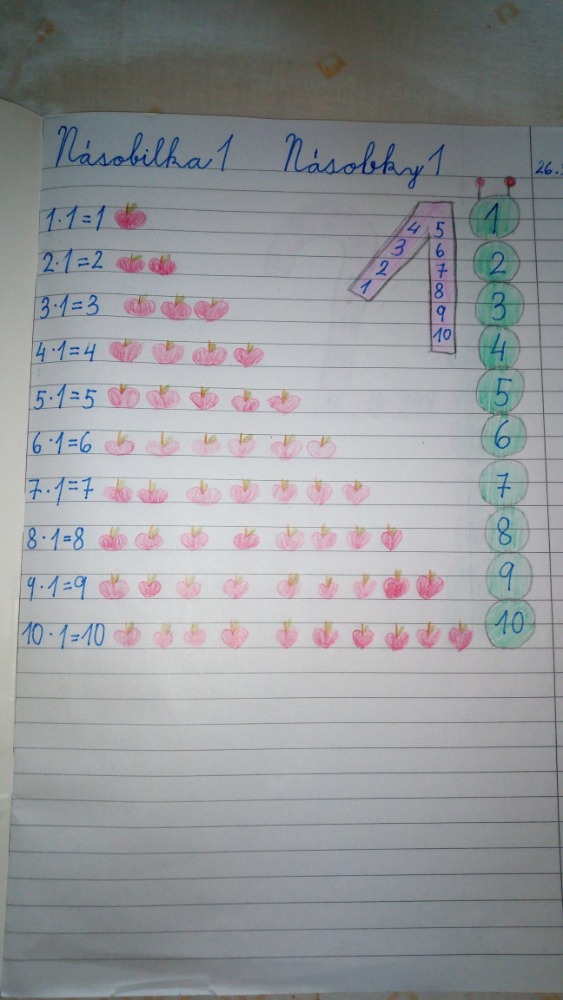 Násobilka 1 Násobky 1
26.
1·1=1
2·1=2
3·1=3
4·1=4
5·1=5
6·1=6
7·1=7
8·1=8
9·1=9
10·1=10
1
2
3
4 5
6
7
8
9
10
1
2
3
4
5
6
7
8
9
10